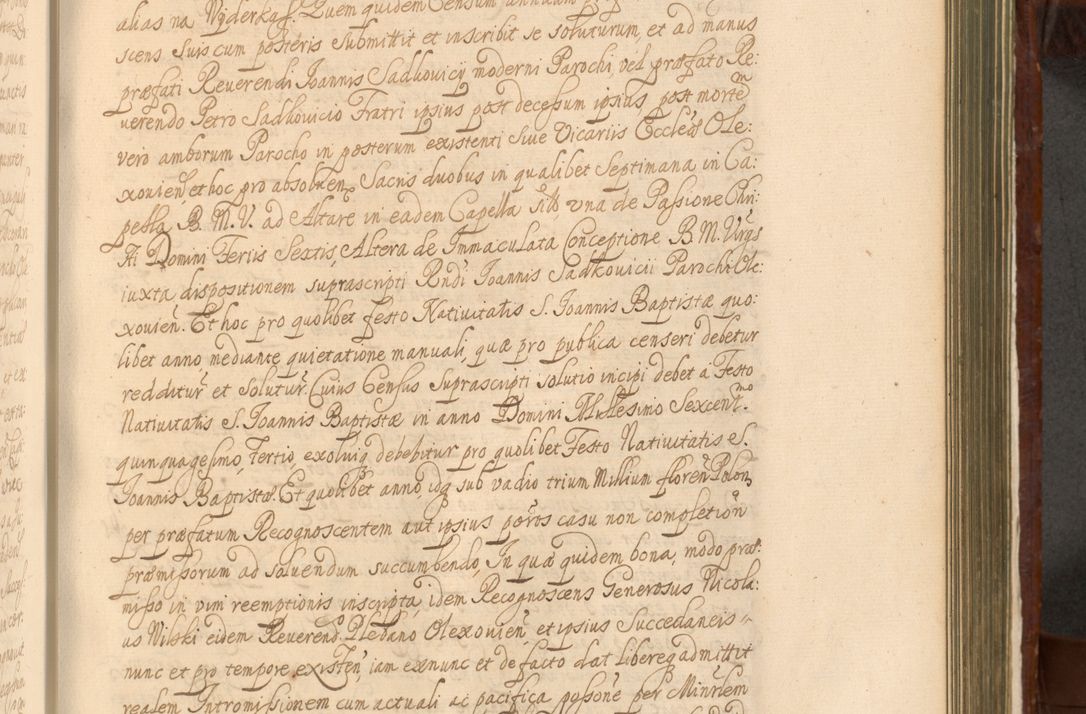 alias na Wyderkaff. Quem quidem Censum annuum
scens suis cum posteris submittit et inscribit se soluturum, et ad manus
præfati Reuerendi Ioannis Sadkovicij moderni Parochi, vel præfato Re:
verendo Petro Sadkovicio Fratri ipsius post decessum ipsius, post mortem
vero amborum Parocho in posterum existenti siue Vicariis Eccleiæ Ole:
xouien, et hoc pro absoluen Sacris duobus in qualibet Septimana in Ca:
pella B. M. V. ad Altare in eadem Capella sito vna de Passione Chri:
sti Domini Feriis Sextis, Altera de Immaculata Conceptione B. M. Virgs
iuxta dispositionem suprascripti Rndi Ioannis Sadkovicii Parochi Ole:
xouien. Et hoc pro quolibet festo Natiuitatis S. Ioannis Baptistæ quo:
libet anno mediante quietatione manuali, quæ pro publica censeri debetur
reddituř et solutuř. Cuius Census suprascripti solutio incipi debet a Festo
Natiuitatis S. Ioannis Baptistæ in anno Domini Millesimo Sexcent.mo
quinquagesimo, Tertio, exoluiq debebitur pro quolibet Festo Natiuitatis S.
Ioannis Baptistæ. Et quolibet anno idq sub vadio trium Millium floren Polon,
per præfatum Recognoscentem aut ipsius poros casu non completion
præmissorum ad soluendum succumbendo, In quæ quidem bona, modo præ:
misso in vim reemptionis inscripta, idem Recognoscens Generosus Nicola:
us Wilski eidem Reuerend. Plebano Olexouien, et ipsius Succedaneis
nunc et pro tempore existen, iam exnunc et de facto dat libereq admittit
realem Intromissionem cum actuali ac pacifica possone per Minrlem